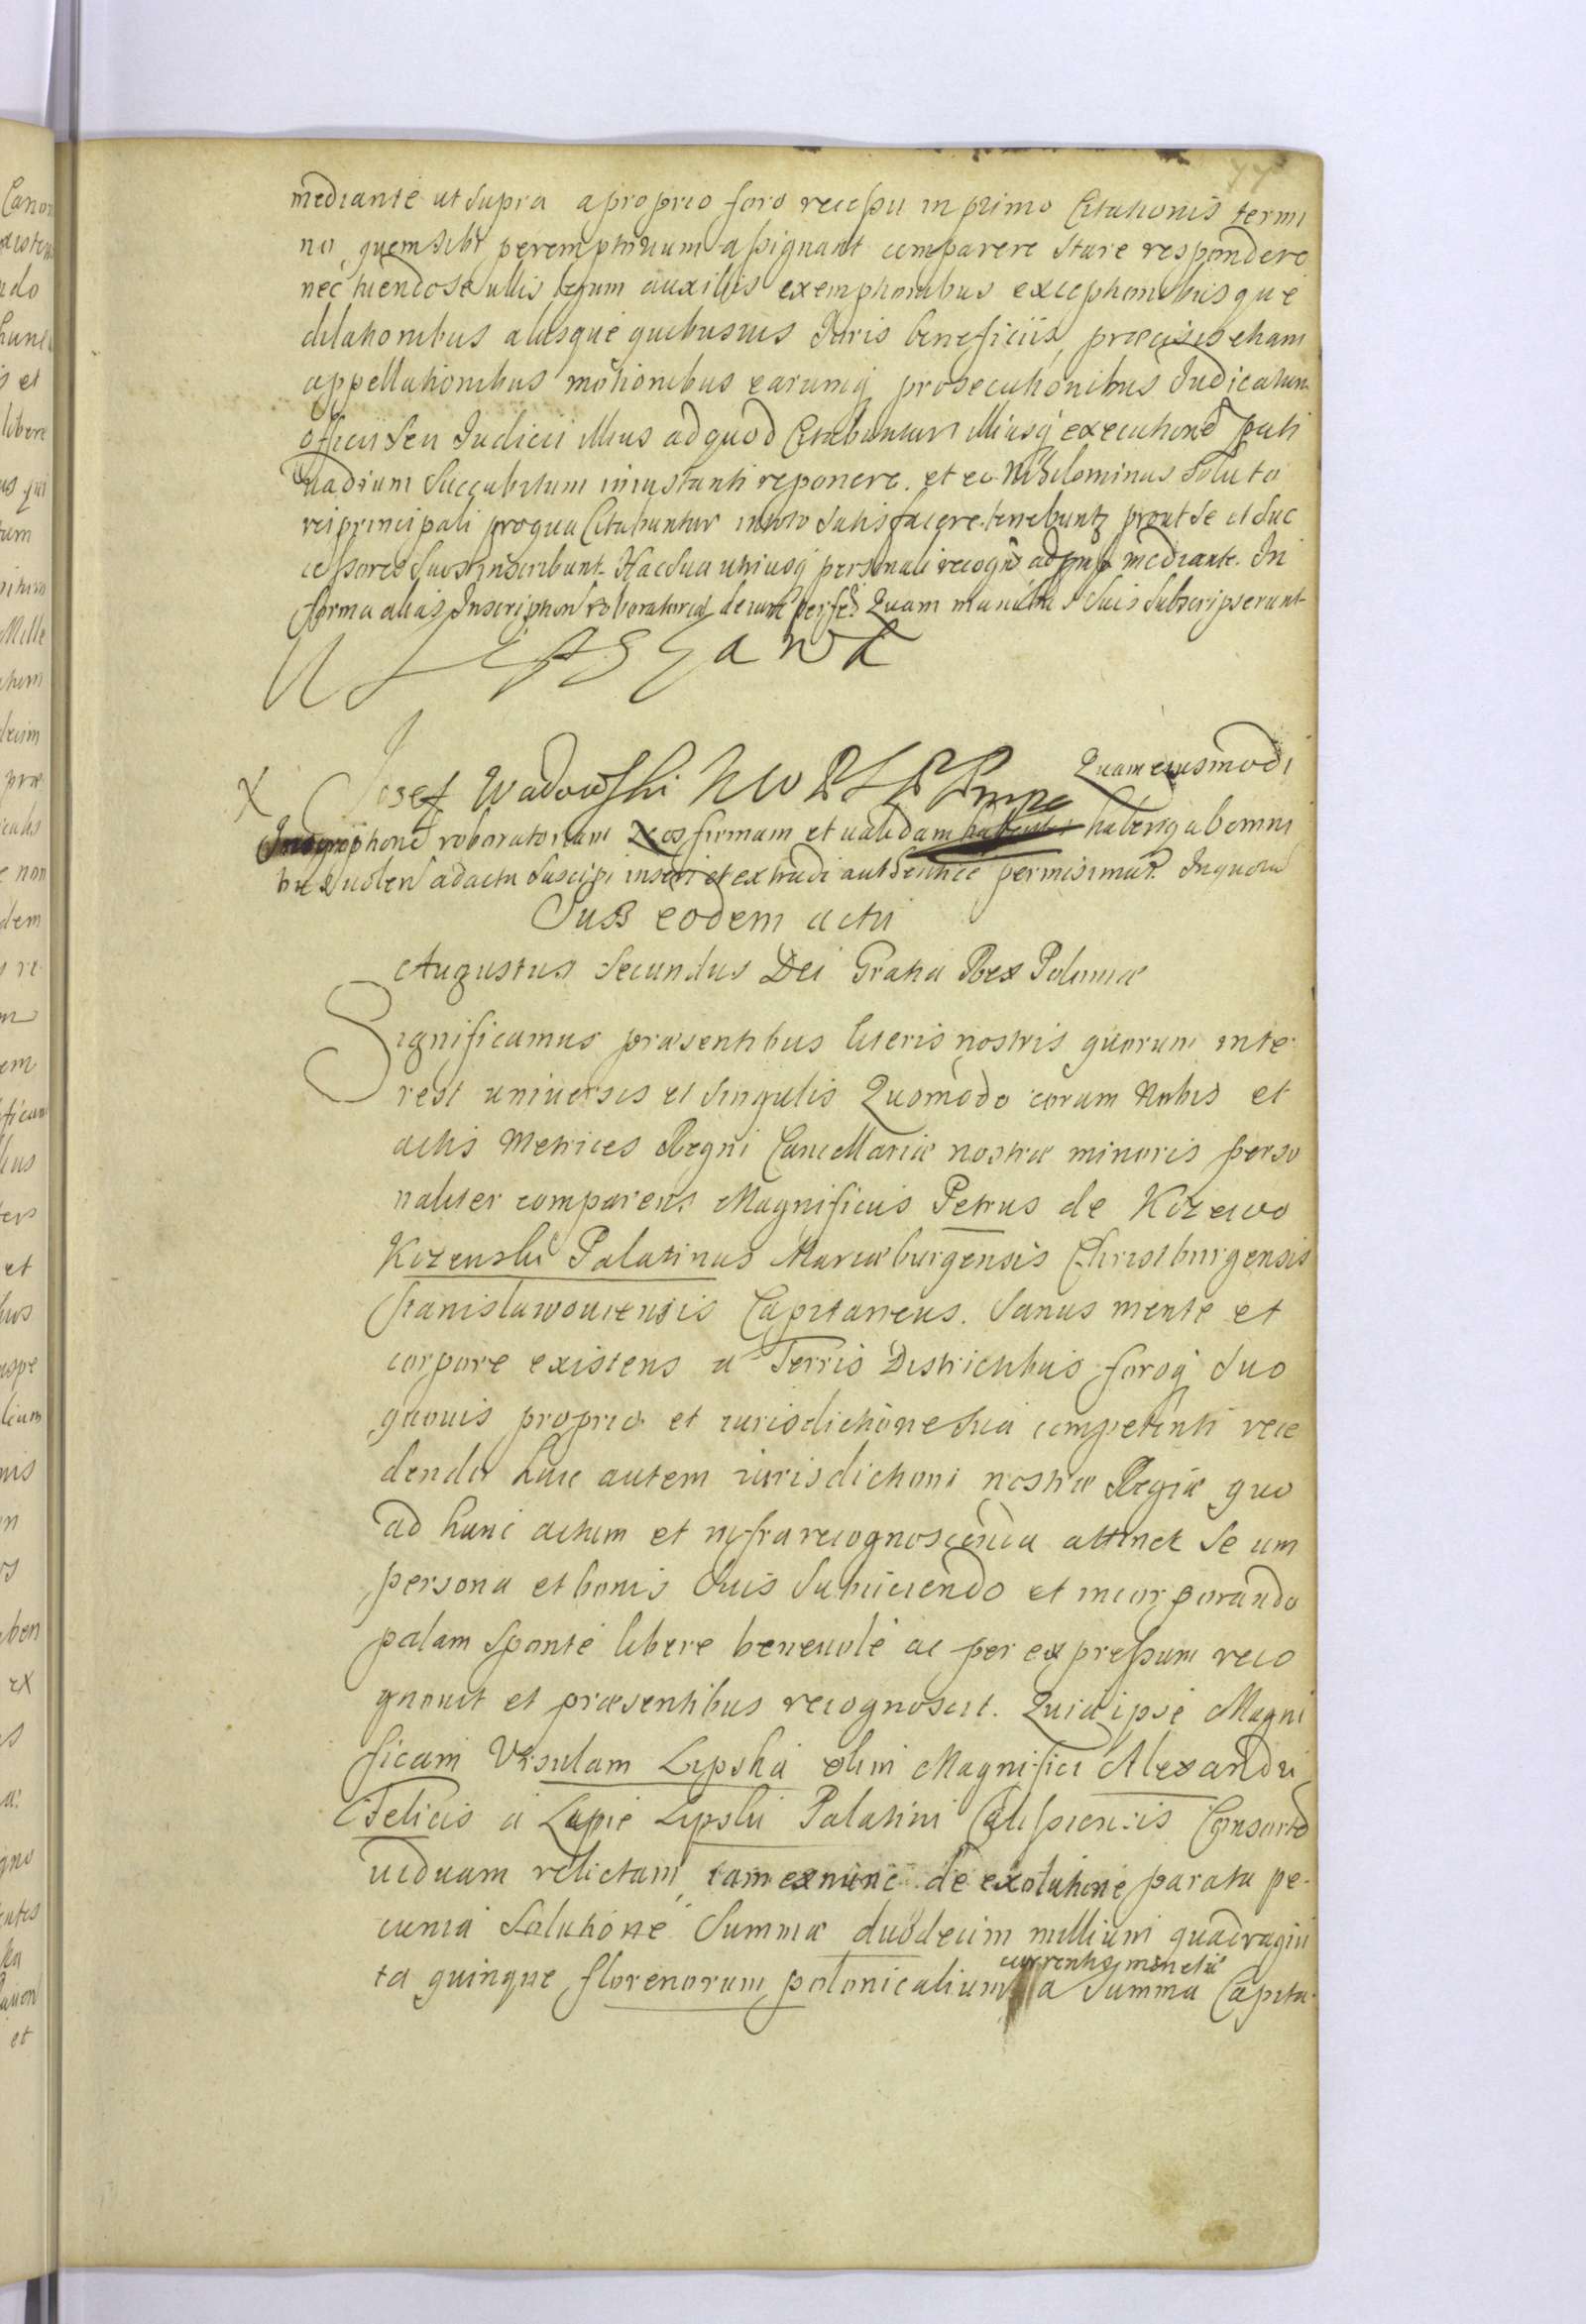 77
mediante ut supra a proprio foro recessu in primo Citationis termi
no, quem sibi peremptorium assignant comparere stare respondere
nec tuendo se ullis legum auxiliis exemptionibus exceptionibusque
dilationibus aliisque quibusuis Juris beneficiis, præcisis etiam
appellationibus motionibus earumq prosecutionibus Judicatum
officii seu Judicii illius ad quod Citabuntur illiusq executione pati
uadium succubitum iniustanti reponere et eo Nihilominus soluto
rei principali pro qua Citabuntur in toto satisfacere tenebuntz prout se et suc
cessores suos inscribunt. Hac sua utriusq personali recogne ad pmssa mediante. In
forma alias Inscription roboratoriæ de iure perfec. Quam manibus suis subscripserunt
Josef Wadowski
Quam eiusmodi
Inscriptione roboratoriam nos firmam et ualidam habentes habensq ab omni
bus uolen ad acta suscipi inseri et extradi authentice permisimus. In quorū
Sub eodem actu
Augustus Secundus Dei Gratia Rex Poloniæ
Significamus præsentibus literis nostris quorum inte
rest uniuersis et singulis Quomodo coram Nobis et
actis Metrices Regni Cancellariæ nostræ minoris perso
naliter comparens Magnificus Petrus de Kczewo
Kczewski Palatinus Mariæburgensis Christburgensis
Stanislawouiensis Capitaneus. Sanus mente et
corpore existens a Terris Districtibus foroq suo
quouis proprio et iurisdictione sua competenti rece
dendo huic autem iurisdictioni nostræ Regiæ quo
ad hunc actum et infrarecognoscenda attinet se cum
persona et bonis suis subiiciendo et incorporando
palam sponte libere beneuole ac per expressum reco
gnouit et præsentibus recognoscit. Quia ipse Magni
ficam Vrsulam Lipska olim Magnifici Alexandri
Felicis a Lipie Lipski Palatini Calissiensis Consorte
uiduam relictam, iam ex nunc de exolutione parata pe-
cunia Solutione Summæ duodecim millium quadragin
ta quinque florenorum polonicalium currentis monetæ a Summa Capita-